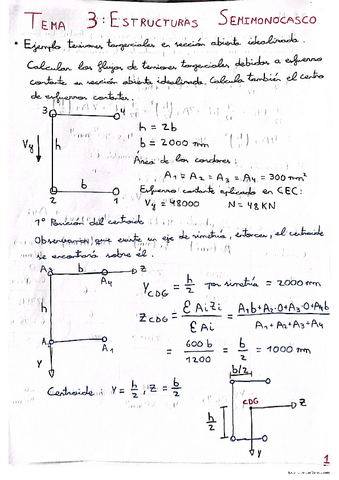 TEMA 3: ESTRUCTURAS SEMIMONOCASCO
• Ejemplo tensiones tangenciales en sección abierta idealizada.
Calcular los flujos de tensiones tangenciales debidos a esfuerzo
cortante en sección abierta idealizada. Calcula también el centro
de esfuerzos cortantes.
3 4
Vy h
b
2 1
h = 2b
b = 2000 mm
Área de los cordones:
A1 = A2 = A3 = A4 = 300 mm²
Esfuerzo cortante aplicado en CEC:
Vy = 48000 N = 48 KN
1º Posición del centroide
que existe un eje de simetría, entonces, el centroide
se encontrará sobre él.
A3 A4 z
h
A2 A1
y
Y CDG = h/2 por simetría = 2000 mm
Z CDG = Σ Ai Zi / Σ Ai = A1 b + A2·0 + A3·0 + A4 b / A1 + A2 + A3 + A4
= 600 b / 1200 = b/2 = 1000 mm
Centroide: Y = h/2, z = b/2
b/2
CDG z
h/2
y
1